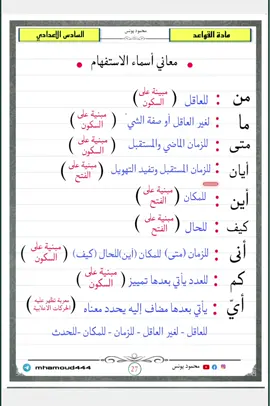 محمود يونس
مادة القواعد
السادس الإعدادي
معاني أسماء الاستفهام
من : للعاقل ( مبينة على السكون )
ما : لغير العاقل أو صفة الشي ( مبنية على السكون )
متى : للزمان الماضي والمستقبل ( مبنية على السكون )
أيان : للزمان المستقبل وتفيد التهويل ( مبنية على الفتح )
أين : للمكان ( مبنية على الفتح )
كيف : للحال ( مبنية على الفتح )
أنى : للزمان (متى) للمكان (اين)للحال (كيف) ( مبنية على السكون )
كم : للعدد يأتي بعدها تمييز ( مبنية على السكون )
أيّ : يأتي بعدها مضاف إليه يحدد معناه ( معربة تظهر عليه الحركات الاعرابية )
للعاقل - لغير العاقل - للزمان - للمكان -للحدث
محمود يونس
27
mhamoud444